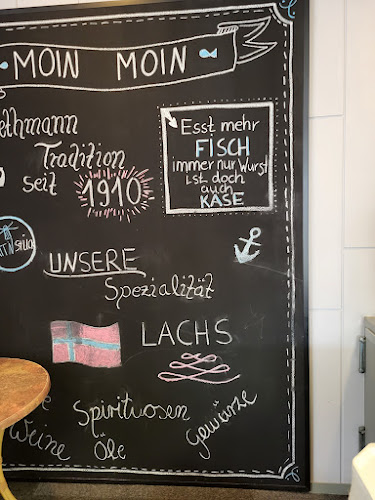 MOIN MOIN
ethmann
Tradition
seit 1910
Esst mehr
FISCH
immer nur Wurst
ist doch
auch
KÄSE
UNSERE
Spezialität
LACHS
Spirituosen
Gewürze
Weine Öle